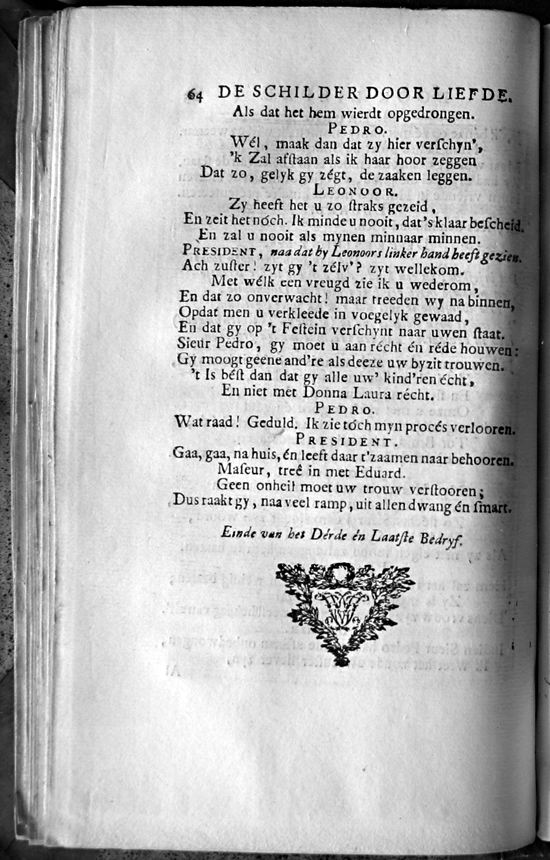 64 DE SCHILDER DOOR LIEFDE.
Als dat het hem wierdt opgedrongen.
PEDRO.
Wél, maak dan dat zy hier verſchyn',
'k Zal afſtaan als ik haar hoor zeggen
Dat zo, gelyk gy zégt, de zaaken leggen.
LEONOOR.
Zy heeft het u zo ſtraks gezeid,
En zeit het nóch. Ik minde u nooit, dat's klaar beſcheid.
En zal u nooit als mynen minnaar minnen.
PRESIDENT, naa dat hy Leonoors linker hand heeft gezien.
Ach zuſter! zyt gy 't zélv'? zyt wellekom.
Met wélk een vreugd zie ik u wederom,
En dat zo onverwacht! maar treeden wy na binnen,
Opdat men u verkleede in voegelyk gewaad,
En dat gy op 't Feſtein verſchynt naar uwen ſtaat.
Sieur Pedro, gy moet u aan récht én réde houwen:
Gy moogt geene and're als deeze uw byzit trouwen.
't Is béſt dan dat gy alle uw' kind'ren écht,
En niet met Donna Laura récht.
PEDRO.
Wat raad! Geduld. Ik zie tóch myn procés verlooren.
PRESIDENT.
Gaa, gaa, na huis, én leeft daar t'zaamen naar behooren.
Maſeur, treê in met Eduard.
Geen onheil moet uw trouw verſtooren;
Dus raakt gy, naa veel ramp, uit allen dwang én ſmart.
Einde van het Dérde én Laatſte Bedryf.